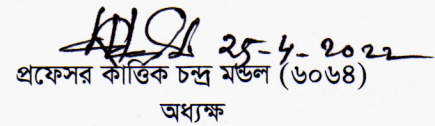 25-4-2022
প্রফেসর কার্তিক চন্দ্র মন্ডল (৬০৬৪)
অধ্যক্ষ